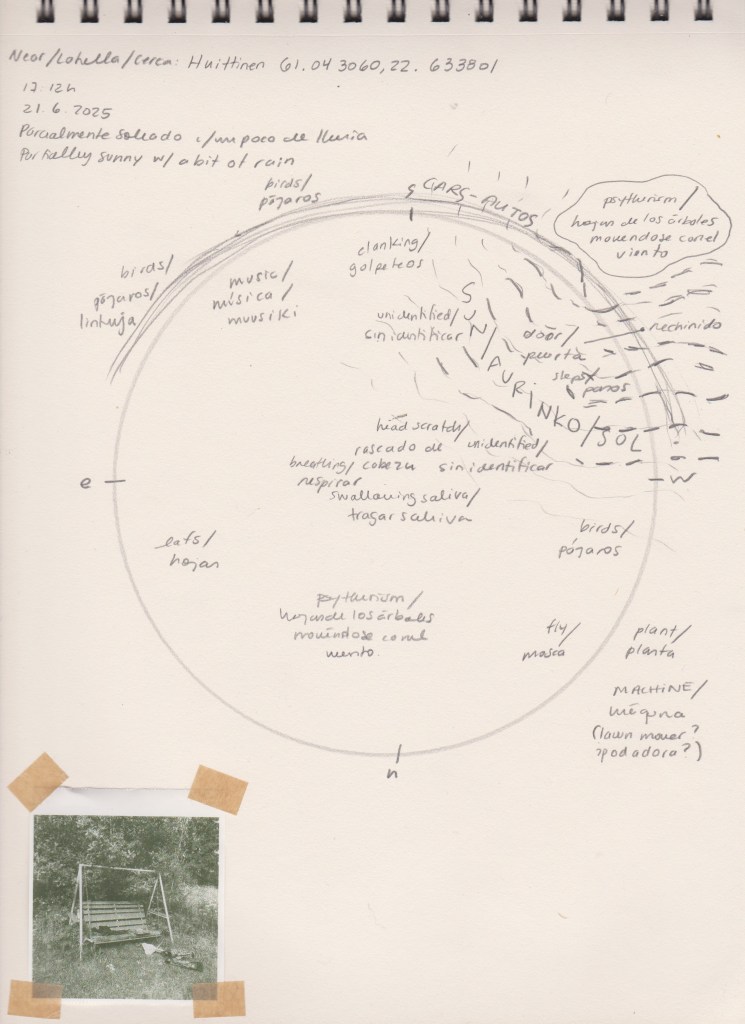 Near/Lahella/Cerca: Huittinen 61.043060, 22.633801
17:12h
21.6.2025
Parcialmente soleado c/un poco de lluvia
Partially sunny w/ a bit of rain
birds/
pájaros
S
CARS-AUTOS
psythurism/
hojas de los árboles
movéndose con el
viento
birds/
pájaros/
lintuja
music/
música/
muusiki
clanking/
golpeteos
unidentified/
sin identificar
SUN/AURINKO/SOL
door/
puerta
rechinido
steps/
pasos
head scratch/
rascado de
cabeza
unidentified/
sin identificar
breathing/
respirar
swallowing saliva/
tragar saliva
e
w
birds/
pájaros
hojas
psythurism/
hojas de los árboles
movéndose con el
viento.
fly/
mosca
plant/
planta
MACHINE/
máquina
(lawn mower?
¿podadora?)
n